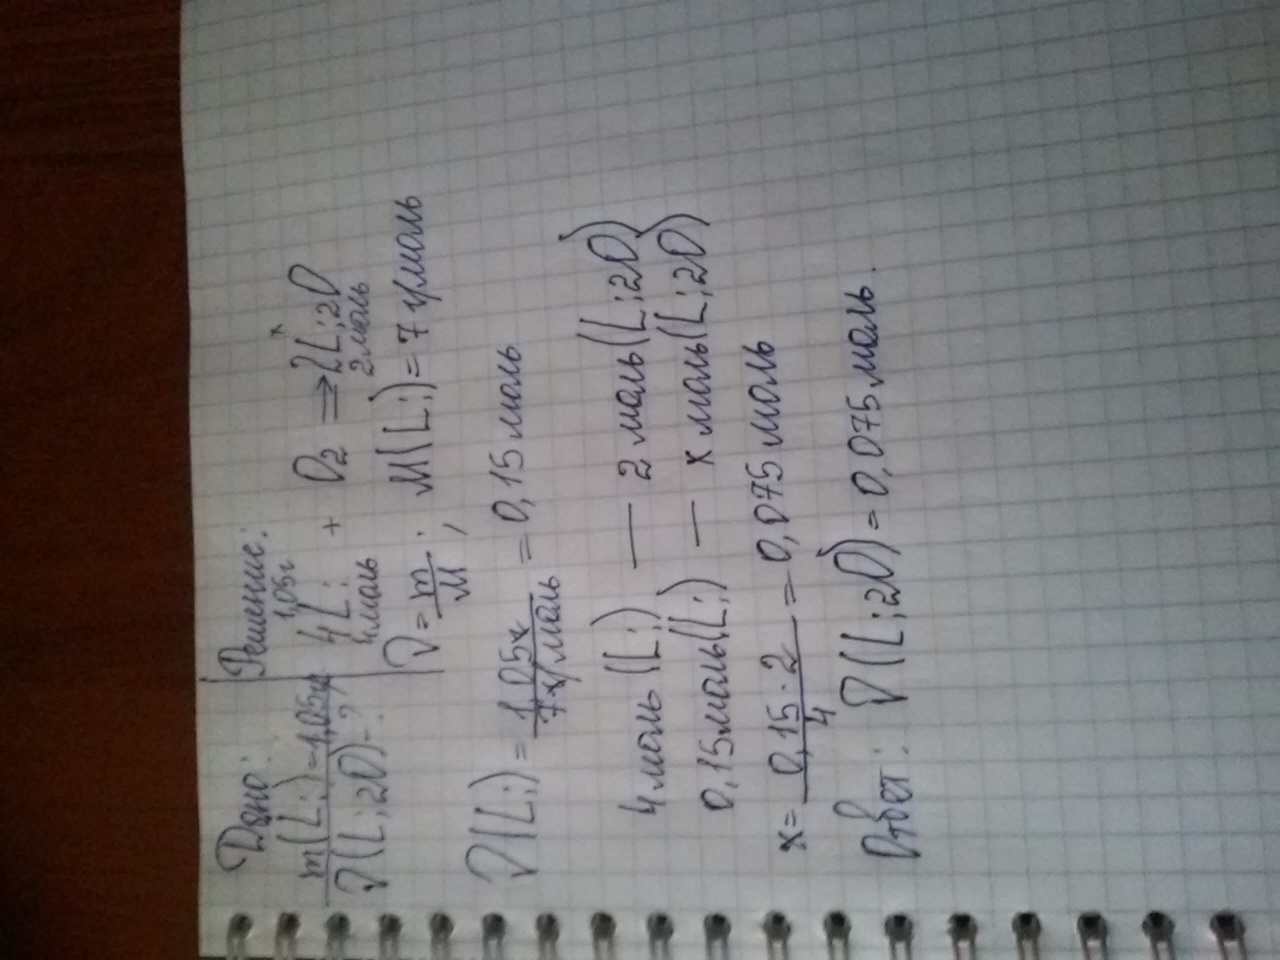 Дано:
m(Li)=1,05г
ν(Li2O)-?
Решение:
1,05г x
4Li + O2 ⇒ 2Li2O
4моль 2моль
ν=m/M; M(Li)=7г/моль
ν(Li)=1,05г/7г/моль=0,15моль
4моль (Li) — 2 моль(Li2O)
0,15моль(Li) — x моль(Li2O)
x=0,15·2/4=0,075 моль
Ответ: ν(Li2O)=0,075моль.